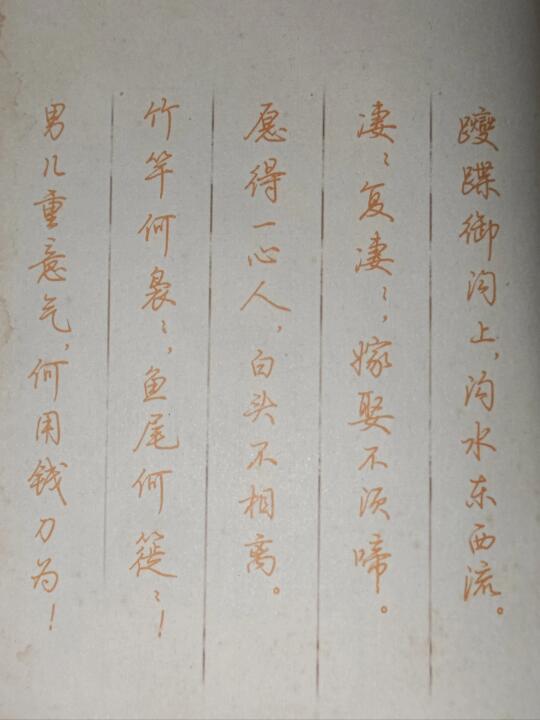 躞蹀御沟上，沟水东西流。
凄〻复凄〻，嫁娶不须啼。
愿得一心人，白头不相离。
竹竿何袅〻，鱼尾何簁〻！
男儿重意气，何用钱刀为！